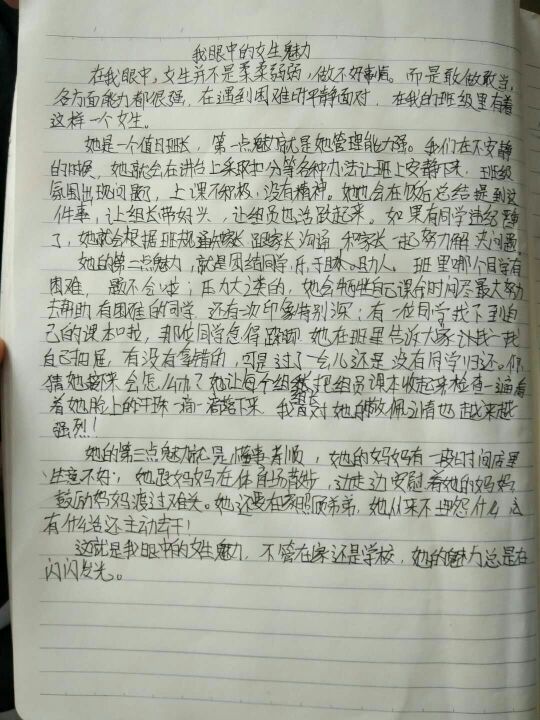 我眼中的女生魅力
在我眼中,女生并不是柔柔弱弱,做不好事情。而是敢做敢当,
各方面能力都很强,在遇到困难时平静面对,在我的班级里有着
这样一个女生。
她是一个值日班长,第一点魅力就是她管理能力强。我们在不安静
的时候,她就会在讲台上采取扣分等各种办法让班上安静下来,班级
氛围出现问题了,上课不积极,没有精神。她也会在饭后总结提到这
件事,让组长带好头,让组员也活跃起来。如果有同学违纪
了,她就会根据班规通知家长,跟家长沟通,和家长一起努力解决问题
她的第二点魅力,就是团结同学,乐于助人。班里哪个同学有
困难,题不会啦;压力大之类的,她会牺牲自己课余时间尽最大努力
去帮助有困难的同学,还有一次印象特别深:有一位同学找不到自
己的课本啦,那位同学急得 她在班里告诉大家让找一找
自己抽屉,有没有拿错的,可是过了一会儿还是没有同学归还。你
猜她接下来会怎么办?她让每个组 把组员课本收起来检查一遍看
着她脸上的汗珠一滴一滴落下来,我 对她的敬佩之情也越来越
强烈!
她的第三点魅力还是懂事孝顺,她的妈妈有一段时间店里
生意不好,她跟妈妈在体育场散步,边走边安慰着她的妈妈,
鼓励妈妈渡过难关。她还要在家照顾弟弟,她从来不埋怨什么
有什么活还主动去干!
这就是我眼中的女生魅力,不管在家还是学校,她的魅力总是在
闪闪发光。